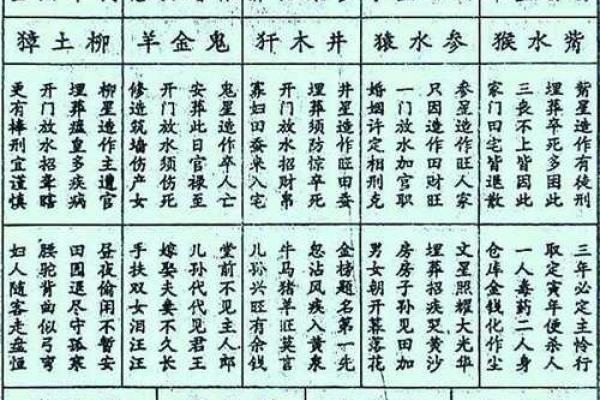 觜水猴
参水猿
井木犴
鬼金羊
柳土獐
觜星造作有徒刑
埋葬卒死多因此
三丧不上皆因此
家门田宅皆退散
参星造作旺人家
只因造作田财旺
一门放水加官职
婚姻许定相刑克
井星造作旺田蚕
埋葬须防惊卒死
开门放水招财帛
寡妇田蚕来入宅
鬼星造作卒人亡
安葬此日官禄至
开门放水须伤死
修造筑墙伤产女
柳星造作主遭官
埋葬瘟皇多疾病
开门放水招聋瞎
更有棒刑宜谨慎
三年必定主怜行
取定寅年便杀人
一人毒药二人身
仓库金钱化作尘
文星照耀大光华
埋葬招疾哭黄沙
房房子孙见田加
男女朝开暮落花
金榜题名第一先
忽沾风疾入黄泉
牛马猪羊旺莫言
儿孙兴旺有余钱
堂前不见主人郎
儿孙代代见君王
嫁娶夫妻不久长
手扶双女泪汪汪
昼夜偷闲不暂安
田园退尽守孤寒
腰驼背曲似弓弯
妇人随客走盘恒